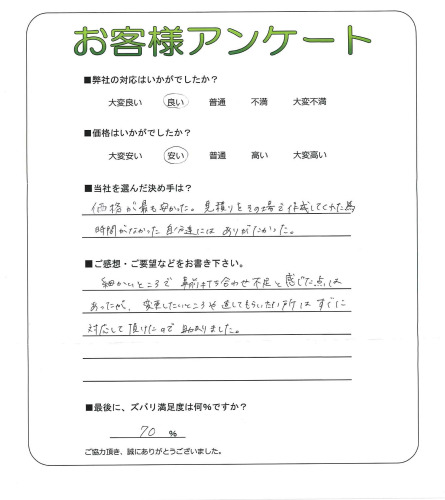 お客様アンケート
■弊社の対応はいかがでしたか？
大変良い 良い 普通 不満 大変不満
■価格はいかがでしたか？
大変安い 安い 普通 高い 大変高い
■当社を選んだ決め手は？
価格が最も安かった。見積りをその場で作成してくれた為
時間がなかった自分達にはありがたかった。
■ご感想・ご要望などをお書き下さい。
細かいところで事前打ち合わせ不足と感じた点は
あったが、変更したいところや直してもらいたい所はすぐに
対応して頂けたので助かりました。
■最後に、ズバリ満足度は何%ですか？
70 %
ご協力頂き、誠にありがとうございました。